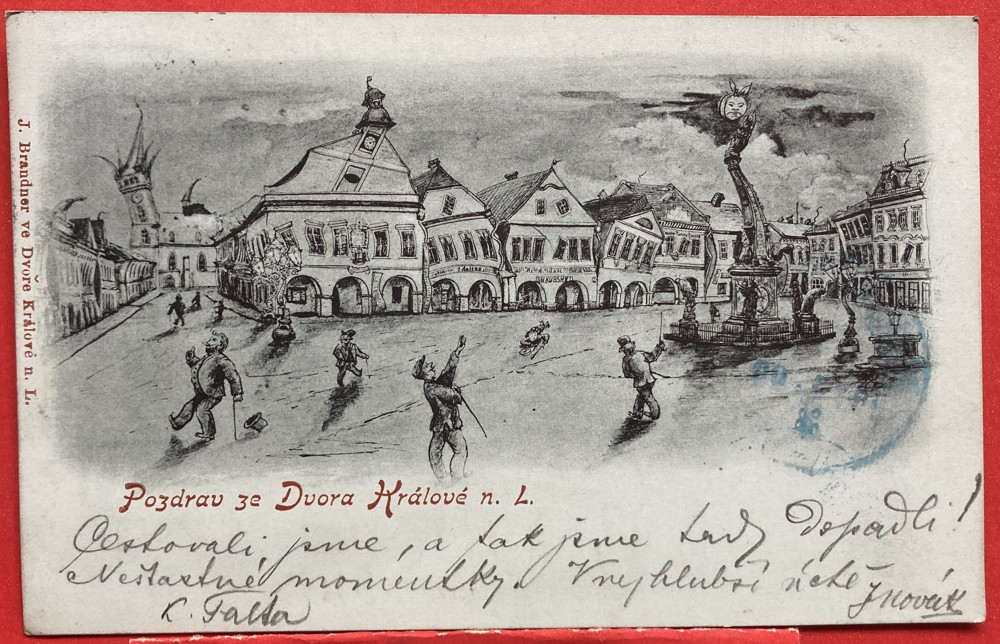 J. Brandner ve Dvoře Králové n. L.
Pozdrav ze Dvora Králové n. L.
Cestovali jsme, a tak jsme tady dopadli!
Neštastné momentky. V nejhlubší úctě
K. Falta
J Novák